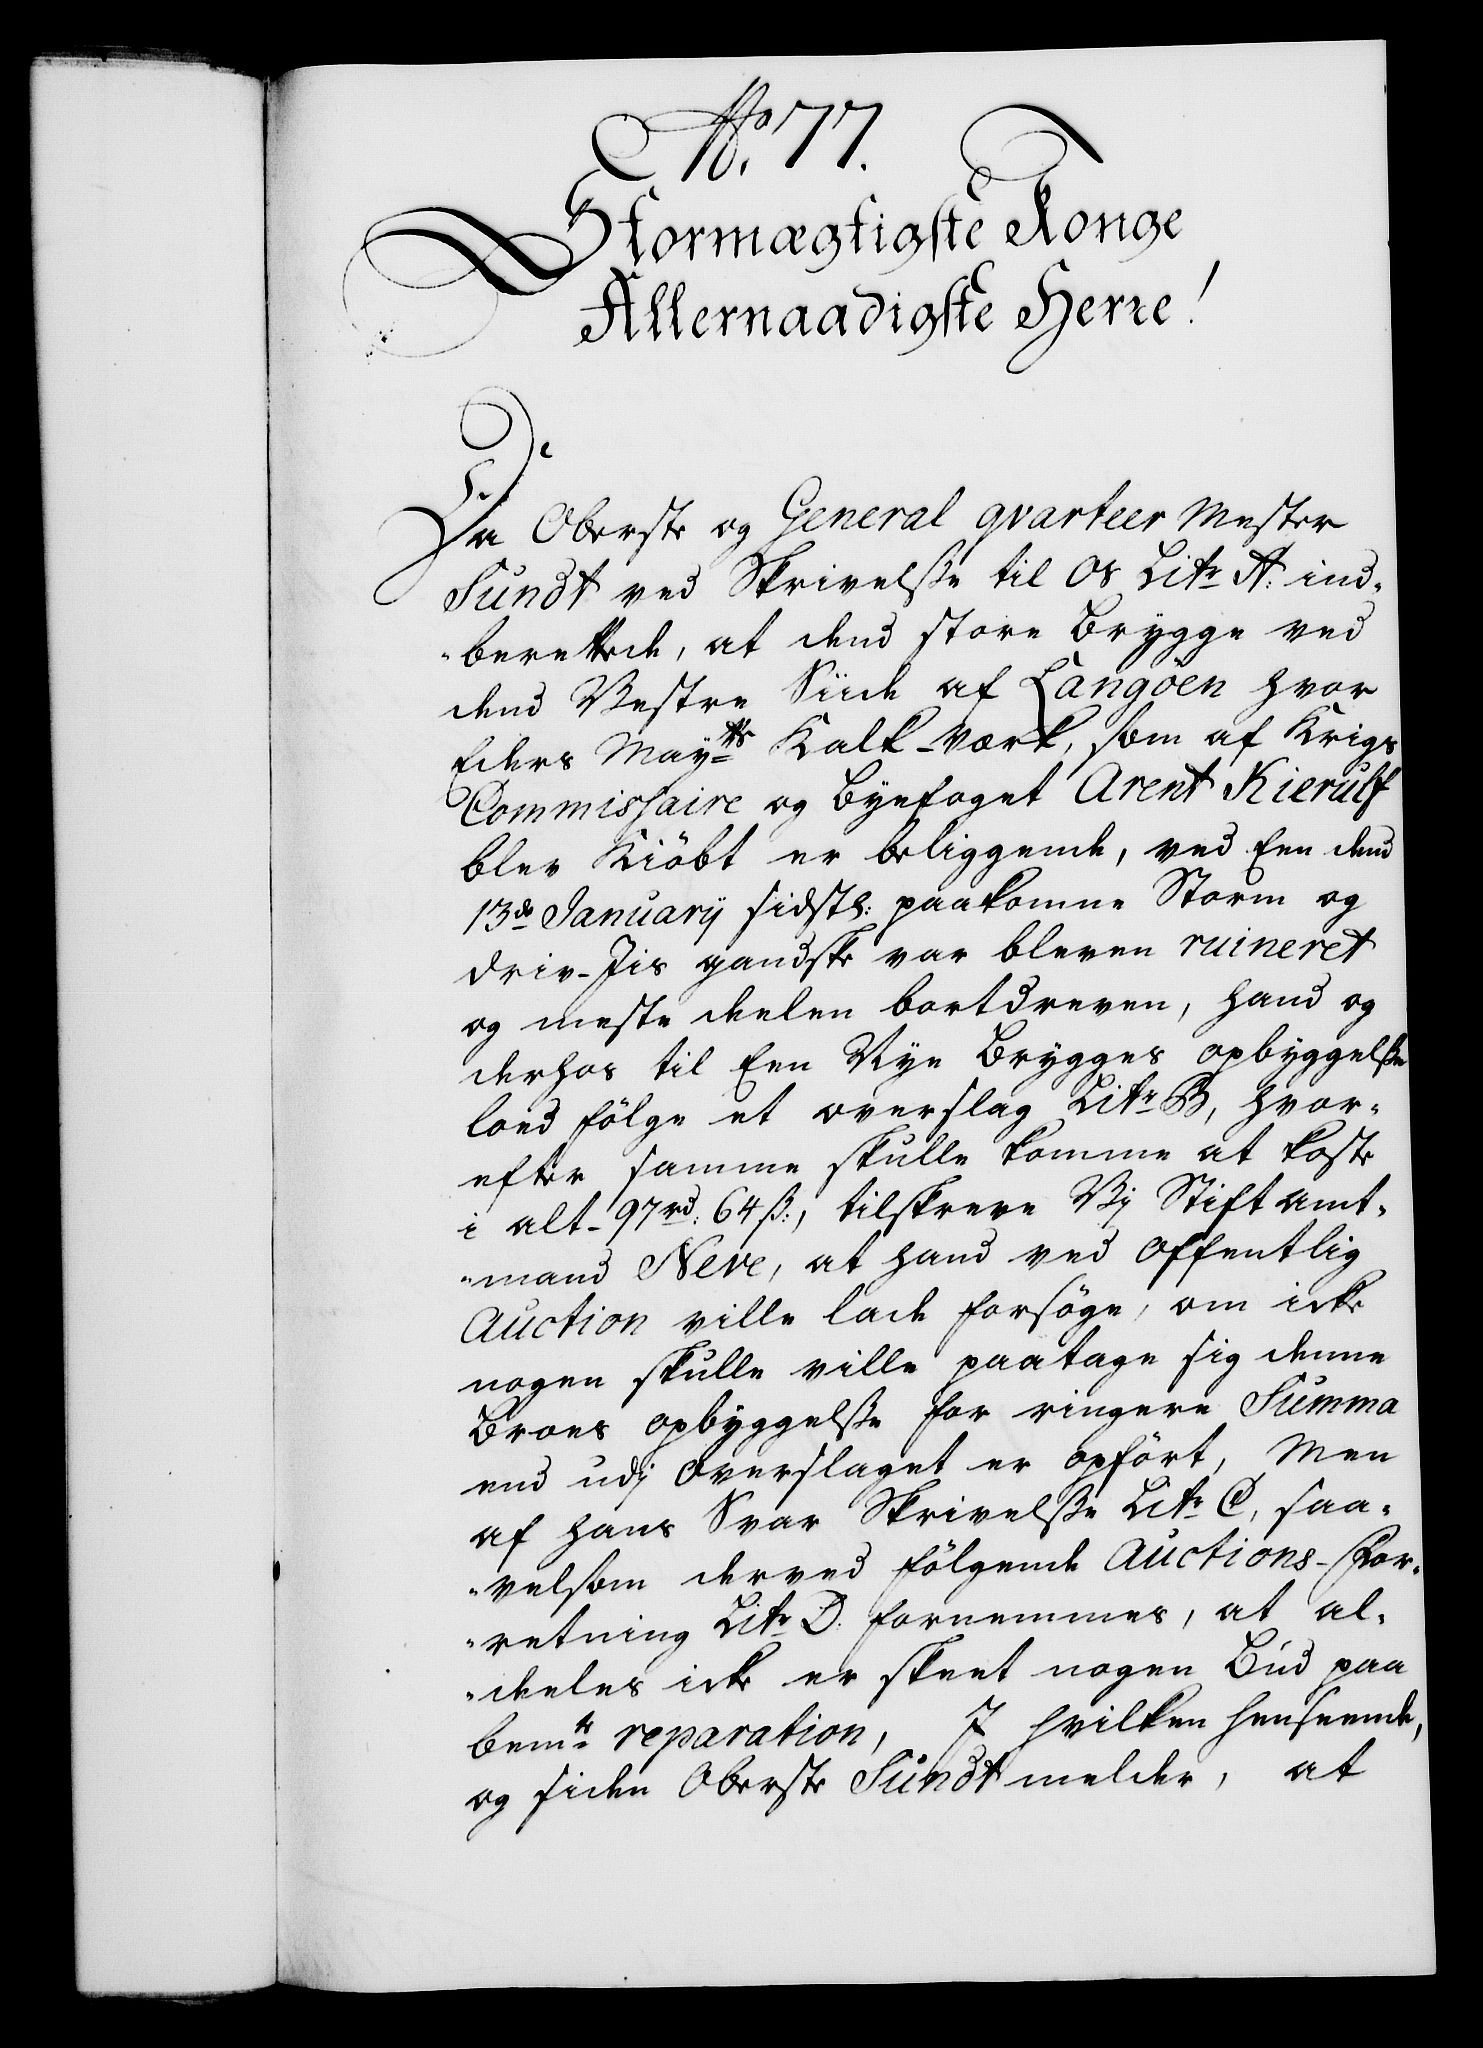 No. 77.
Stormægtigste Konge
Allernaadigste Herre!
Da Oberste og General qvarteer Mester
Sundt ved Skrivelsse til Os Litr A: ind-
-berettede, at dend store Brygge ved
dend Vestre Siide af Langöen hvor
Eders Mayts Kalk-værk, som af Krigs
Commissaire og Byefoget Arent Kierulf
blev Kiöbt er beliggende, ved Een dend
13de January sidstl: paakomne Storm og
driv-Jis gandske var bleven ruineret
og meste deelen bortdreven, hand og
derhos til Een Nye Brygges opbyggelsse
loed fölge et overslag Litr B, hvor-
efter samme skulle komme at koste
i alt 97rd: 64 ß:, tilskreve Vi Stift amt-
-mand Neve, at hand ved offentlig
Auction ville lade forsöge, om icke
nogen skulle ville paatage sig denne
Broes opbyggelsse for ringere Summa
end udj overslaget er opfört, Men
af hans Svar Skrivelsse Litr C, saa-
-velsom derved fölgende Auctions-For-
-retning Litr D: fornemmes, at al-
-deeles icke er skeet nogen Bud paa
bemte reparation, J hvilken henseende,
og siden Oberste Sundt melder, at